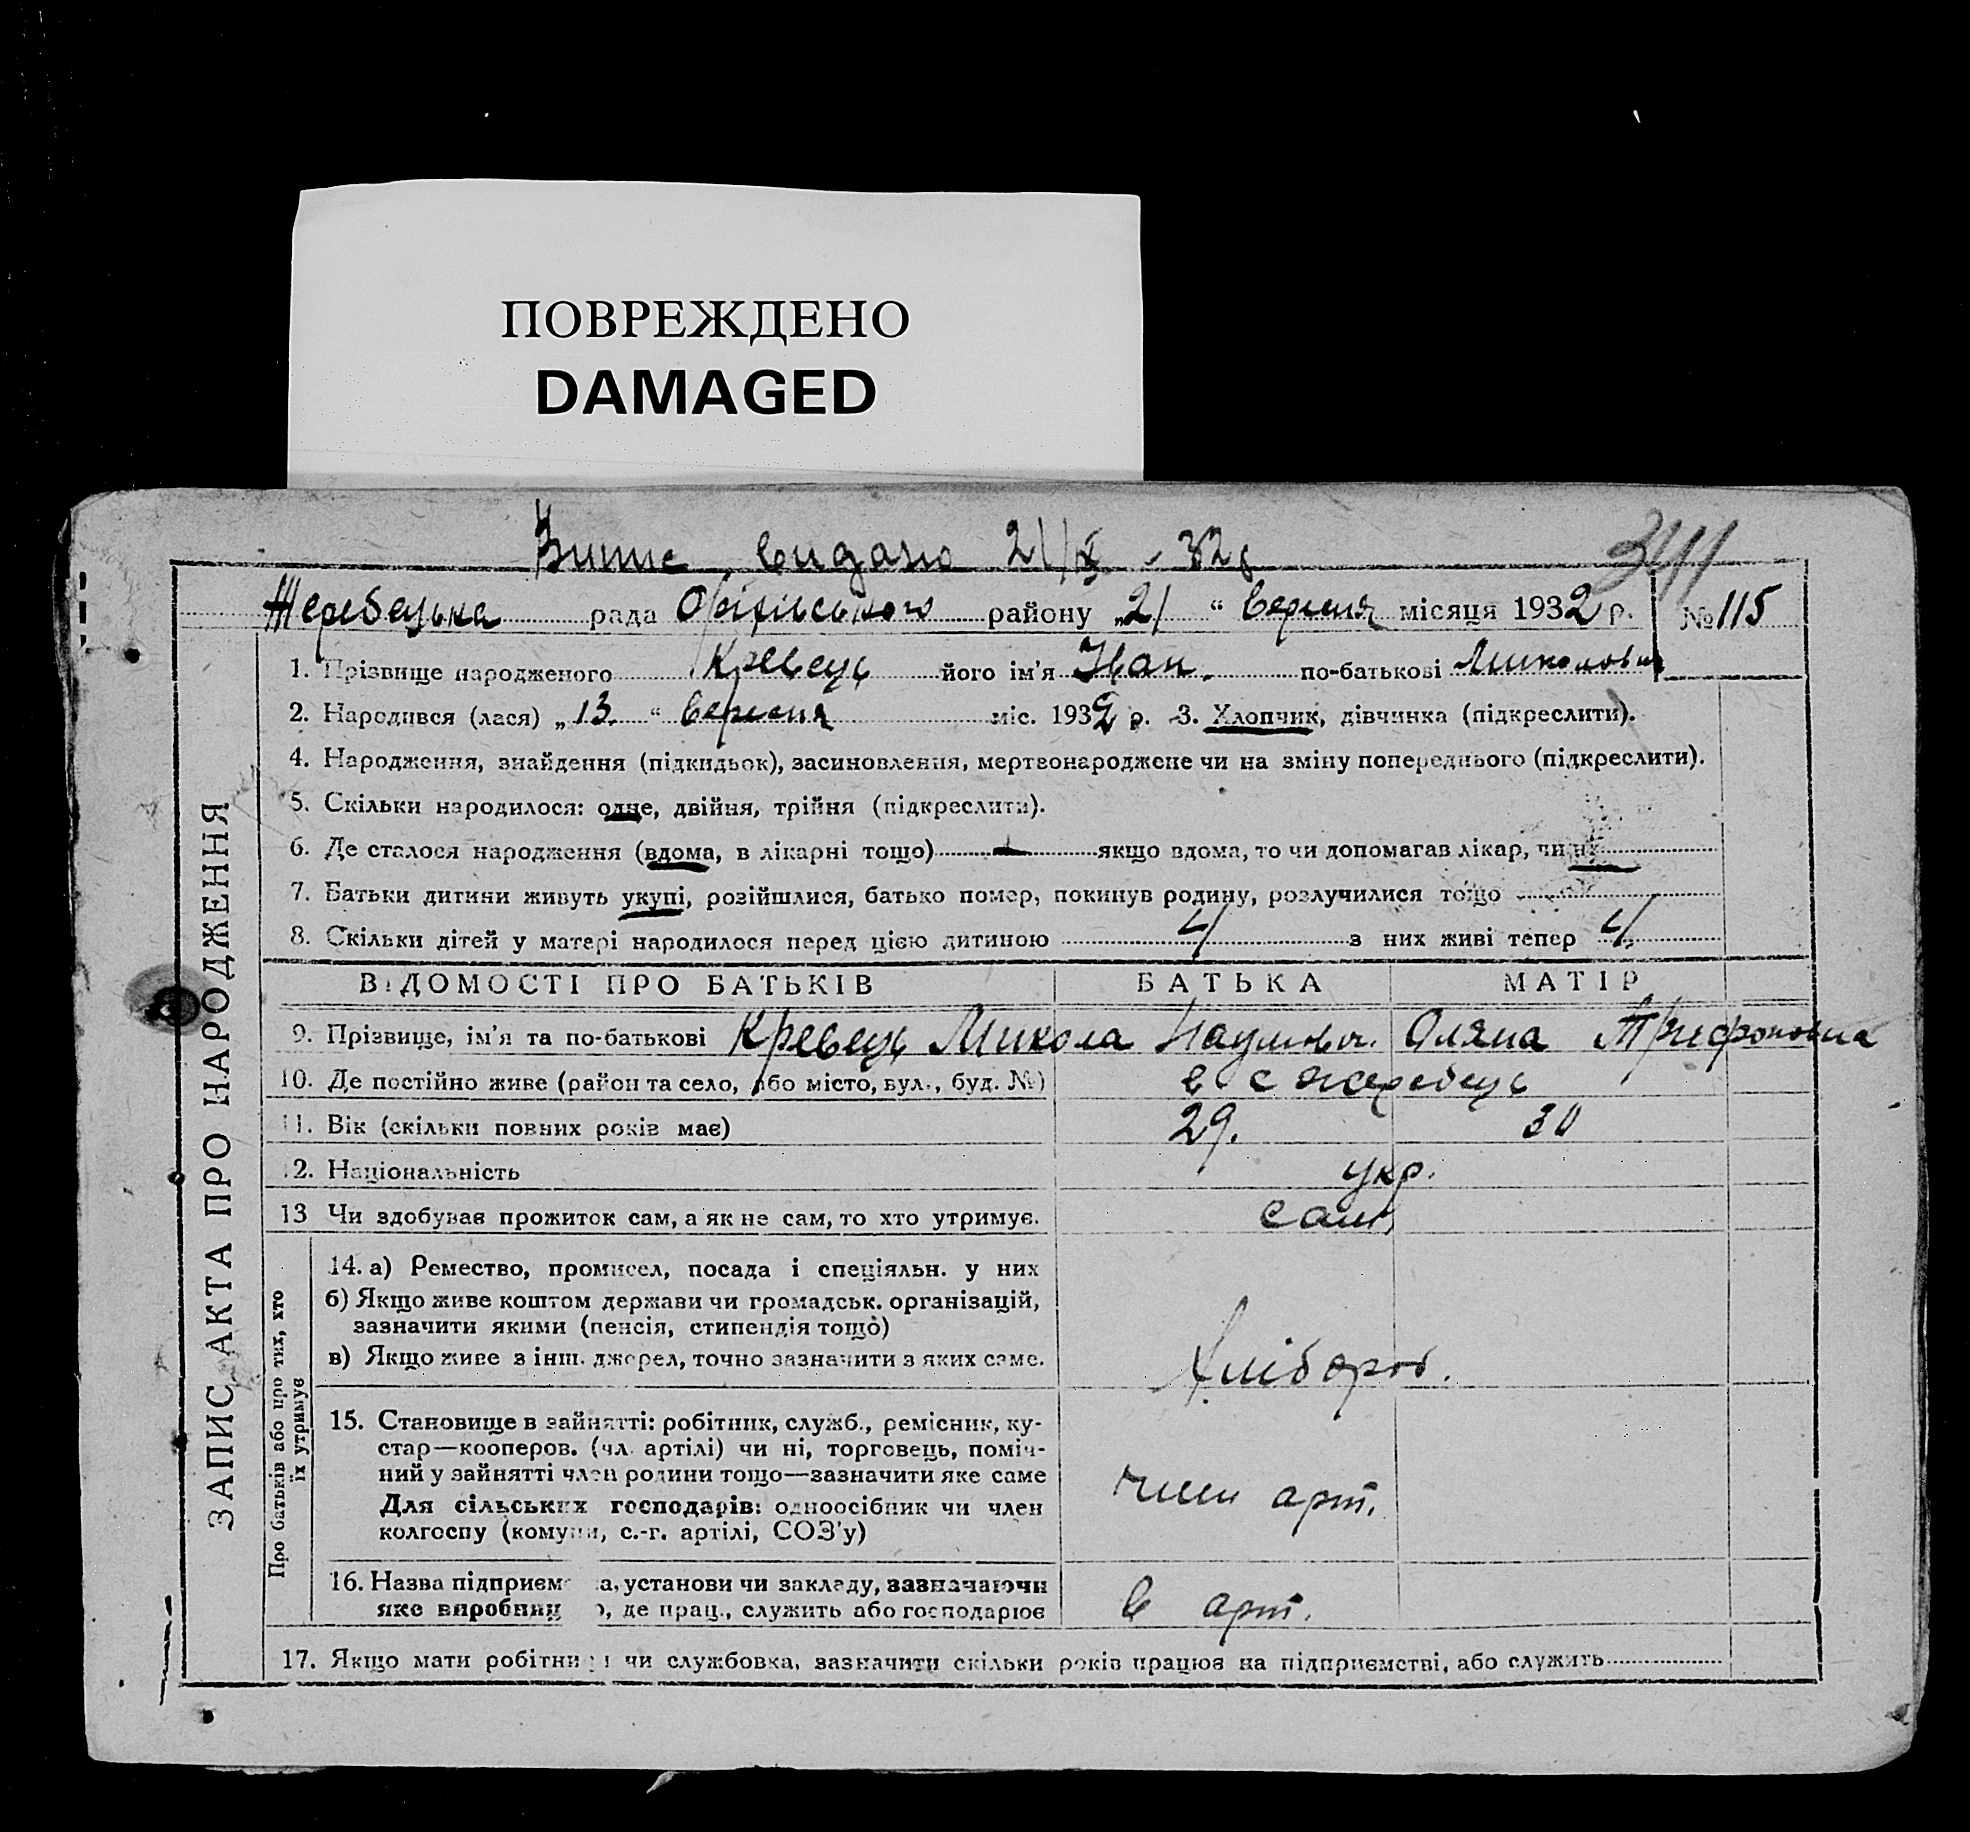 ПОВРЕЖДЕНО
DAMAGED
Витяг видано 21/IX - 32р
341
Жеребецька рада Оріхівського району „21“ вересня місяця 1932 р. № 115
ЗАПИС АКТА ПРО НАРОДЖЕННЯ
1. Прізвище народженого Кревець його ім'я Іван. по-батькові Миколович
2. Народився (лася) „13.“ вересня міс. 1932 р. 3. Хлопчик, дівчинка (підкреслити).
4. Народження, знайдення (підкидьок), засиновлення, мертвонароджене чи на зміну попереднього (підкреслити).
5. Скільки народилося: одне, двійня, трійня (підкреслити).
6. Де сталося народження (вдома, в лікарні тощо) якщо вдома, то чи допомагав лікар, чи ні
7. Батьки дитини живуть укупі, розійшлися, батько помер, покинув родину, розлучилися тощо
8. Скільки дітей у матері народилося перед цією дитиною 4 з них живі тепер 4.
ВІДОМОСТІ ПРО БАТЬКІВ БАТЬКА МАТІР
9. Прізвище, ім'я та по-батькові Кревець Микола Наумович. Оляна Трифоновна
10. Де постійно живе (район та село, або місто, вул., буд. №) в с Жеребець
11. Вік (скільки повних років має) 29. 30
12. Національність укр.
13 Чи здобував прожиток сам, а як не сам, то хто утримує. сам.
Про батьків або про тих, хто
їх утримує
14. а) Ремество, промисел, посада і спеціяльн. у них
б) Якщо живе коштом держави чи громадськ. організацій,
зазначити якими (пенсія, стипендія тощо)
в) Якщо живе з інш. джерел, точно зазначити з яких саме.
Хлібороб.
15. Становище в зайнятті: робітник, служб., ремісник, ку-
стар—кооперов. (чл. артілі) чи ні, торговець, поміч-
ний у зайнятті член родини тощо—зазначити яке саме
Для сільських господарів: одноосібник чи член
колгоспу (комуни, с.-г. артілі, СОЗ'у)
член арт.
16. Назва підприєм а, установи чи закладу, зазначаючи
яке виробниц о, де прац., служить або господарює
в арт.
17. Якщо мати робітниця чи службовка, зазначити скільки років працює на підприємстві, або служить